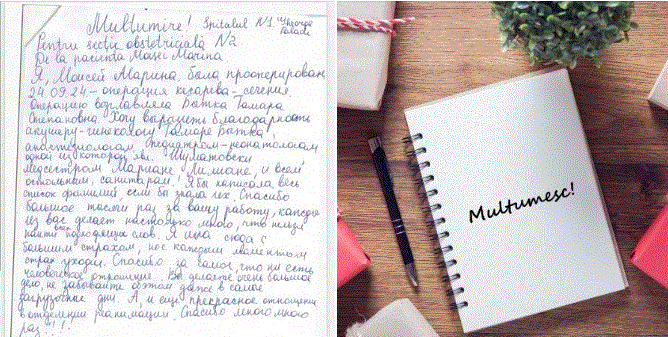 Multumire! Spitalul N1. "Gheorge
Paladi
Pentru secția obstetricală N2
De la pacienta Moisei Marina
Я, Моисей Марина, была прооперирован
24.09.24 – операция кесарева-сечения.
Операцию возглавляла Бытка Тамара
Степановна. Хочу выразить благодарность
акушеру-гинекологу Тамаре Бытка,
анастезиологам, педиатрам-неонатологам
одной из которой яв. Шумановски
медсестрам Мариане, Лилиане, и всем
остольным, санитарам! Я бы написала весь
список фамилий если бы знала их. Спасибо
большое тысячи раз за вашу работу, каждый
из вас делает настолько много, что нельзя
найти вам подходящих слов. Я шла сюда с
большим страхом, но с каждым моментом
страх уходил. Спасибо за самое, что ни есть
человеческое отношение. Вы делаете очень большое
дело, не забывайте об этом даже в самые
загрузочные дни. А, и еще прекрасное отношение
в отделении реанимации. Спасибо много много
раз "!!!
Multumesc!